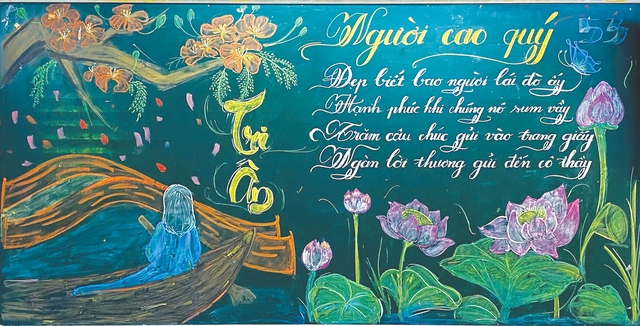 Người cao quý
Tri
Ân
Đẹp biết bao người lái đò ấy
Hạnh phúc khi chúng nó sum vầy
Trăm câu chúc gửi vào trang giấy
Ngàn lời thương gửi đến cô thầy